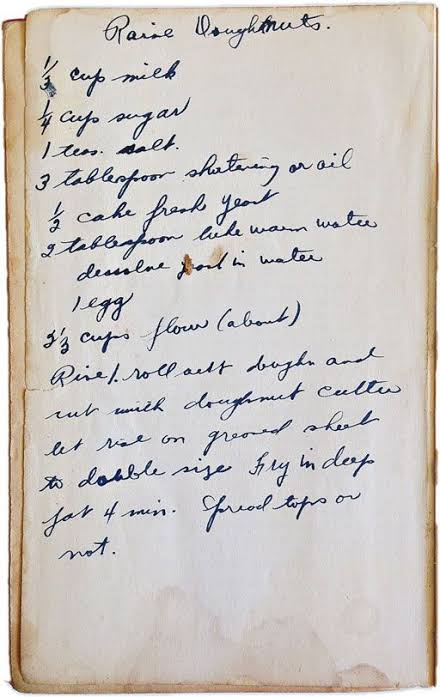 Raise Doughnuts.
1/3 cup milk
1/4 cup sugar
1 teas. salt.
3 tablespoon shortening or oil
1/2 cake fresh yeast
2 tablespoon luke warm water
dessolve in water
1 egg
3 1/3 cups flour (about)
Rise/. roll out dough and
cut with doughnut cutter
let rise on greased sheet
to double size Fry in deep
fat 4 min. Spread tops or
not.